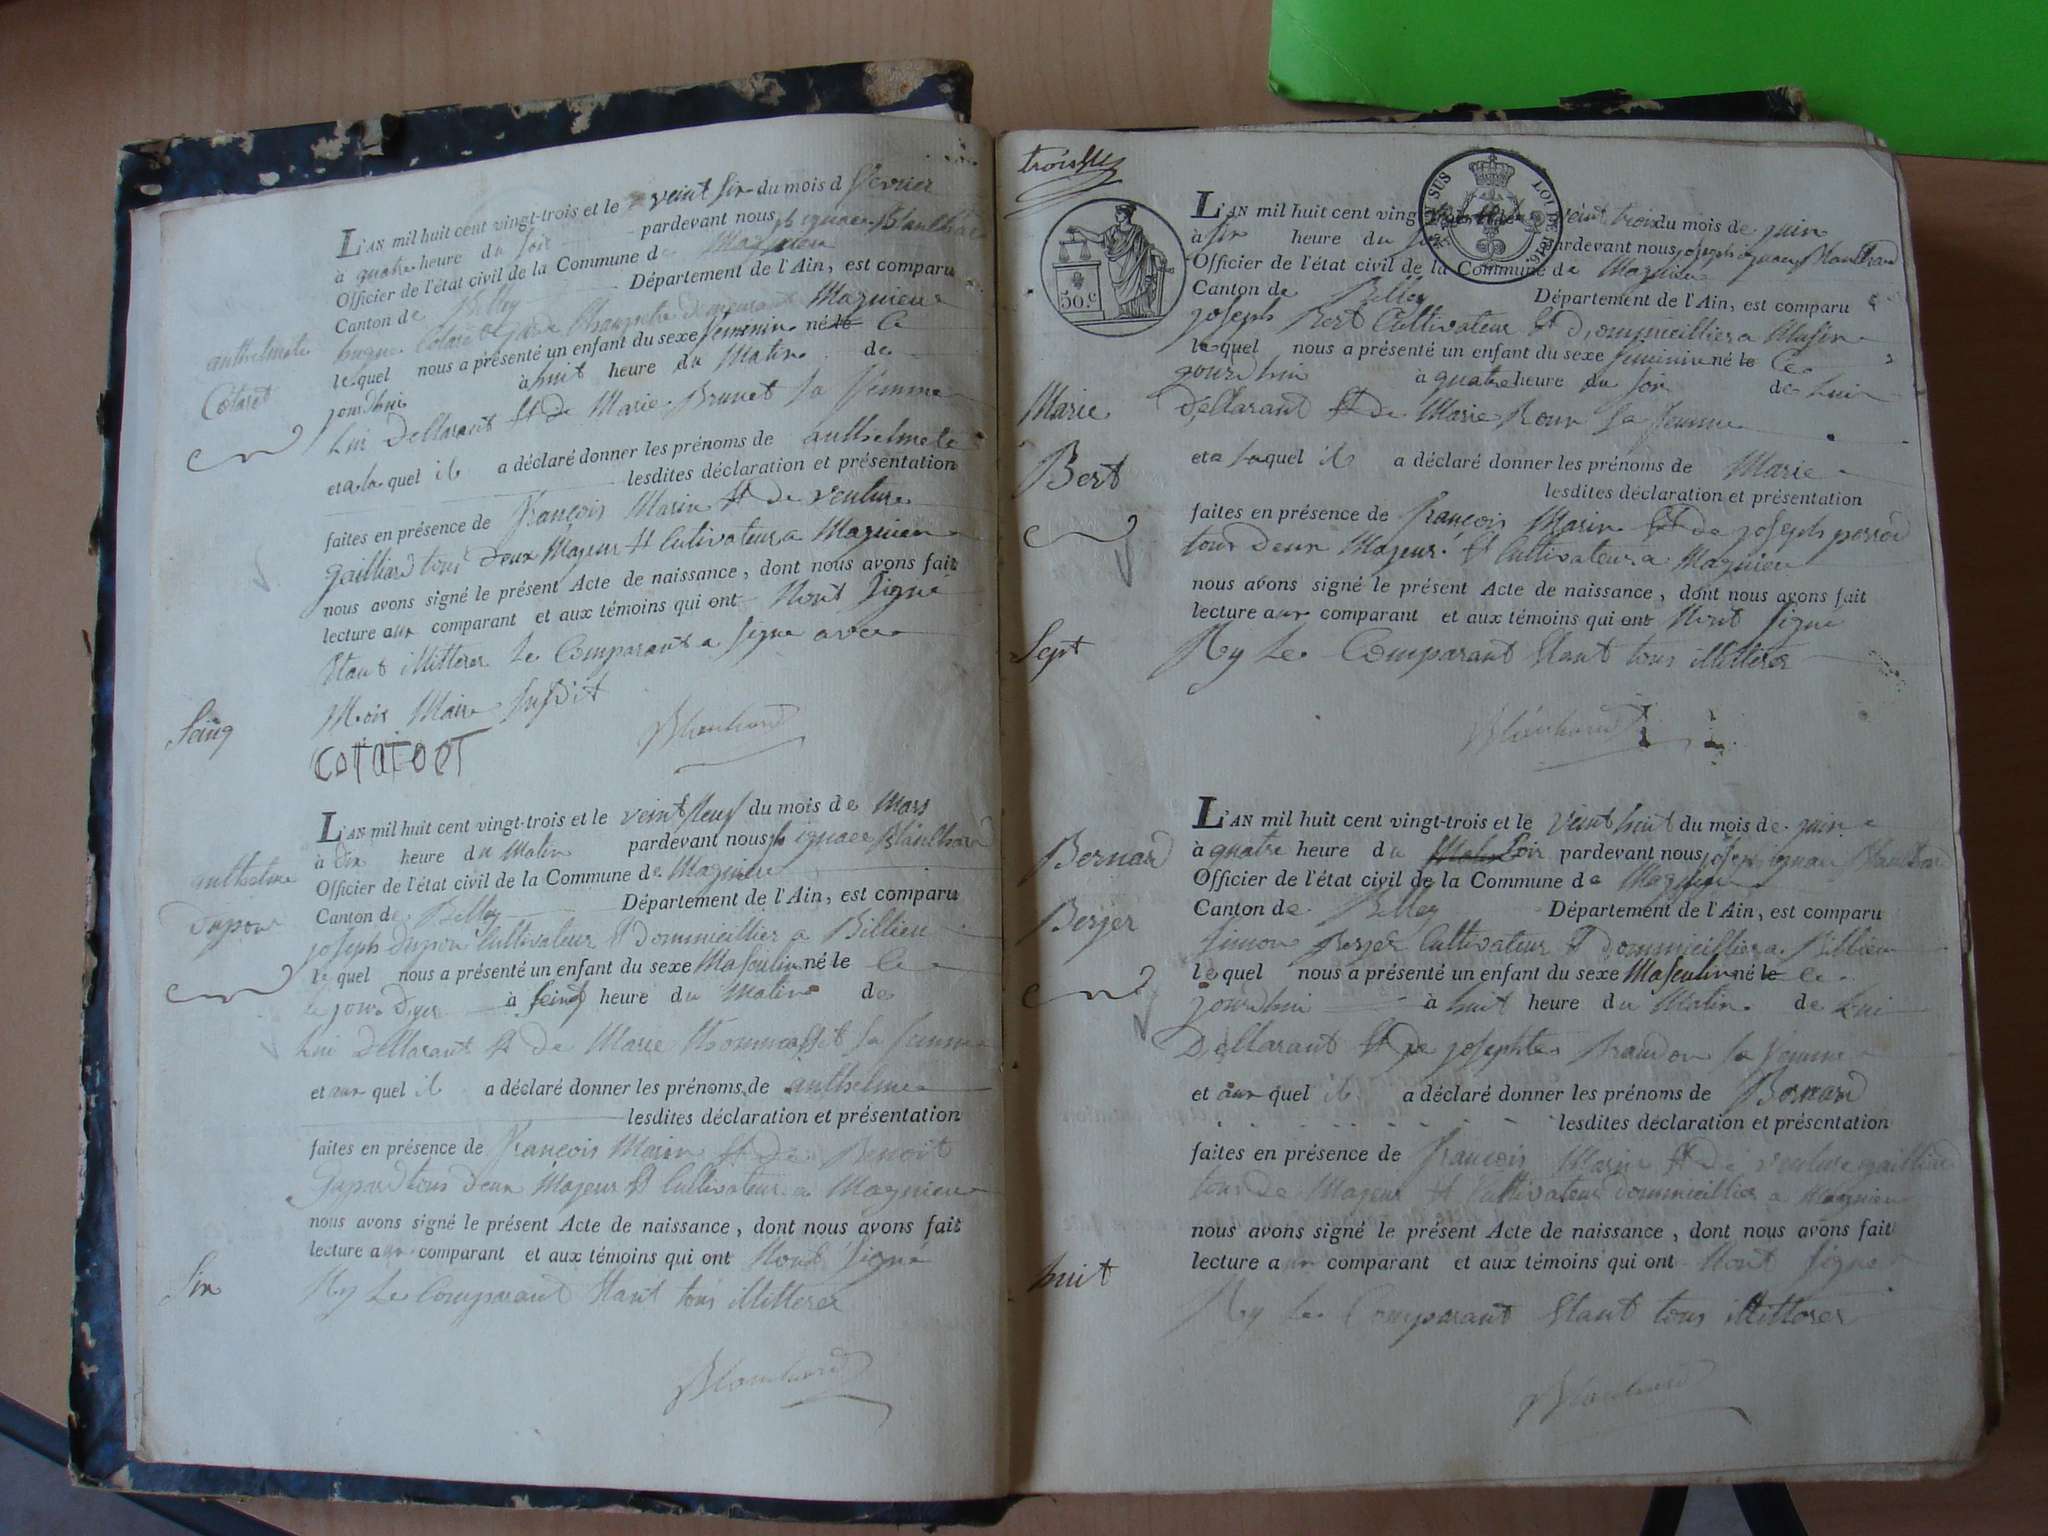 L'AN mil huit cent vingt-trois et le veint six du mois d février
à quatre heure du soir pardevant nous jh ignace Blanchard
Officier de l'état civil de la Commune de Magnieu
Canton de Belley Département de l'Ain, est comparu
anthelmete
Cotaret
hugue Cotaret garde Champetre demeurant Magnieu
le quel nous a présenté un enfant du sexe féminin né le Ce
jourdhui à huit heure du Matin de
Lui Dellarant Et De Marie Brunet Sa femme
et a la quel il a déclaré donner les prénoms de anthelmete
lesdites déclaration et présentation
faites en présence de françois Marin Et De venture
gailliard tous deux Majeur Et Cultivateur a Magnieu
nous avons signé le présent Acte de naissance, dont nous avons fait
lecture aux comparant et aux témoins qui ont Nont Signé
Etant illitterer Le Comparant a Signe avec
Moi Maire Susdit
Seinq
Blanchard
L'AN mil huit cent vingt-trois et le veint Neuf du mois de Mars
à dix heure du Matin pardevant nous jh ignace Blanchard
Officier de l'état civil de la Commune de Magnieu
Canton de Belley Département de l'Ain, est comparu
anthelme
Dupon
joseph Dupon Cultivateur Et Dommicillier a Billieu
le quel nous a présenté un enfant du sexe Masculin né le Ce
le jour Dyer à Seinq heure du Matin de
Lui Dellarant Et De Marie Sa femme
et aux quel il a déclaré donner les prénoms de anthelme
lesdites déclaration et présentation
faites en présence de françois Marin Et De Benoit
tous deux Majeur Et Cultivateur a Magnieu
nous avons signé le présent Acte de naissance, dont nous avons fait
lecture aux comparant et aux témoins qui ont Nont Signé
Six
Ny Le Comparant Etant tous illitterer
Blanchard
LOI DE 1816.
50.c
L'AN mil huit cent vingt-trois et le veint trois du mois de juin
à six heure du soir pardevant nous joseph ignace Blanchard
Officier de l'état civil de la Commune de Magnieu
Canton de Belley Département de l'Ain, est comparu
joseph Bert Cultivateur Et Dommicillier a
le quel nous a présenté un enfant du sexe feminin né le Ce
jourdhui à quatre heure du soir de Lui
Marie
Dellarant Et De Marie Roux Sa femme
Bert
et a la quel il a déclaré donner les prénoms de Marie
lesdites déclaration et présentation
faites en présence de françois Marin Et De joseph
tous deux Majeur Et Cultivateur a Magnieu
nous avons signé le présent Acte de naissance, dont nous avons fait
lecture aux comparant et aux témoins qui ont Nont Signe
Sept
Ny Le Comparant Etant tous illitterer
Blanchard
L'AN mil huit cent vingt-trois et le veint huit du mois de juin
à quatre heure du Matin Soir pardevant nous joseph ignace Blanchard
Officier de l'état civil de la Commune de Magnieu
Canton de Belley Département de l'Ain, est comparu
Bernard
Berjer
Simon Berjer Cultivateur Et Dommicillier a Billieu
le quel nous a présenté un enfant du sexe Masculin né le Ce
jourdhui à huit heure du Matin de Lui
Dellarant Et De josephte Sa femme
et aux quel il a déclaré donner les prénoms de Bernard
lesdites déclaration et présentation
faites en présence de françois Marin Et De venture gailliard
tous De Majeur Et Cultivateur Dommicillier a Magnieu
nous avons signé le présent Acte de naissance, dont nous avons fait
lecture aux comparant et aux témoins qui ont Nont Signe
huit
Ny Le Comparant Etant tous illitterer
Blanchard